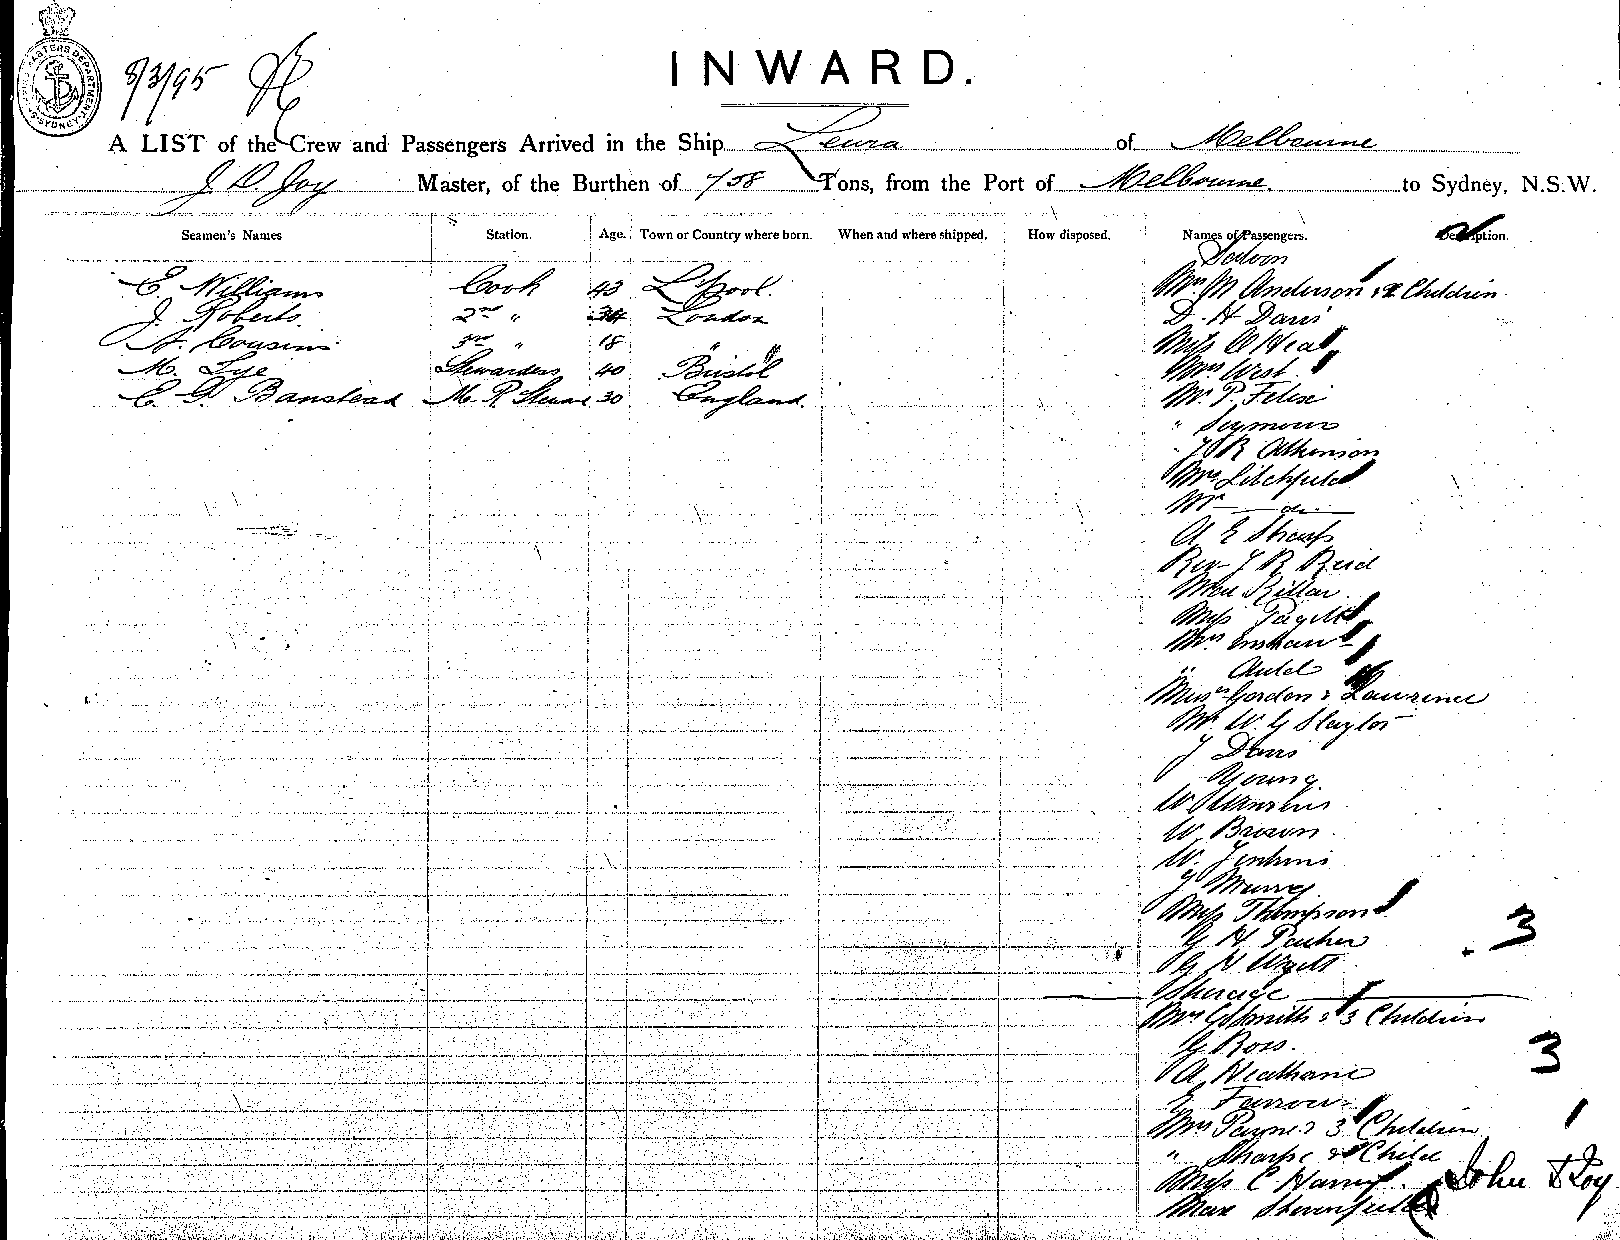 8/3/95
INWARD.
A LIST of the Crew and Passengers Arrived in the Ship Leura of Melbourne
Master, of the Burthen of 758 Tons, from the Port of Melbourne. to Sydney, N.S.W.
Seamen's Names Station. Age. Town or Country where born. When and where shipped. How disposed. Names of Passengers. Description.
Saloon
E. Williams Cook 43 L'Pool. Mrs M Anderson & 2 Children
J. Roberts. 2nd " London D. H Davis
A. Cousins 3rd " 18 " Miss
M. Lye Stewardess 40 Bristol Mrs West
E. G. Banstead 30 England. Mr P. Felix
" Seymour
J R Atkinson
Mrs Litchfield
Mr — do —
A E Sharp
Rev J R Reid
Miss
Mrs
" Auld
Gordon & Lawrence
Mr W. G Slaytor
J Davis
Young
W
W Brown
W. Jenkins
J Murray
Miss Thompson
3
G H Parker
G H
Steerage
Mrs G Smith & 3 Children
G Ross.
3
A
Farrow
Mrs Payne & 3 Children
" Sharpe & Child
Miss C
John
Max